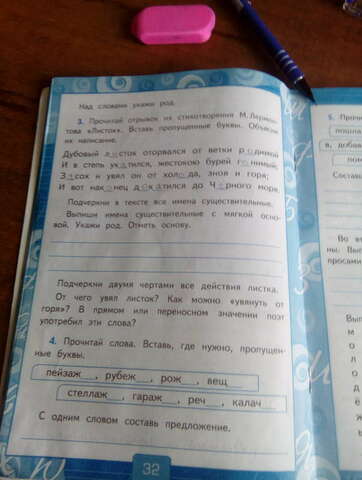 Над словами укажи род.
3. Прочитай отрывок из стихотворения М. Лермон-
това «Листок». Вставь пропущенные буквы. Объясни
их написание.
Дубовый листок оторвался от ветки родимой
И в степь укатился, жестокою бурей гонимый;
Засох и увял он от холода, зноя и горя;
И вот наконец докатился до Чёрного моря.
Подчеркни в тексте все имена существительные.
Выпиши имена существительные с мягкой осно-
вой. Укажи род. Отметь основу.
Подчеркни двумя чертами все действия листка.
От чего увял листок? Как можно «увянуть от
горя»? В прямом или переносном значении поэт
употребил эти слова?
4. Прочитай слова. Вставь, где нужно, пропущен-
ные буквы.
пейзаж__, рубеж__, рож__, вещ__
стеллаж__, гараж__, реч__, калач__
С одним словом составь предложение.
32
5. Проч
в, добав
Составь
Во в
ны. Вып
просами
Вып
м
о
л
о
д
ё
ж